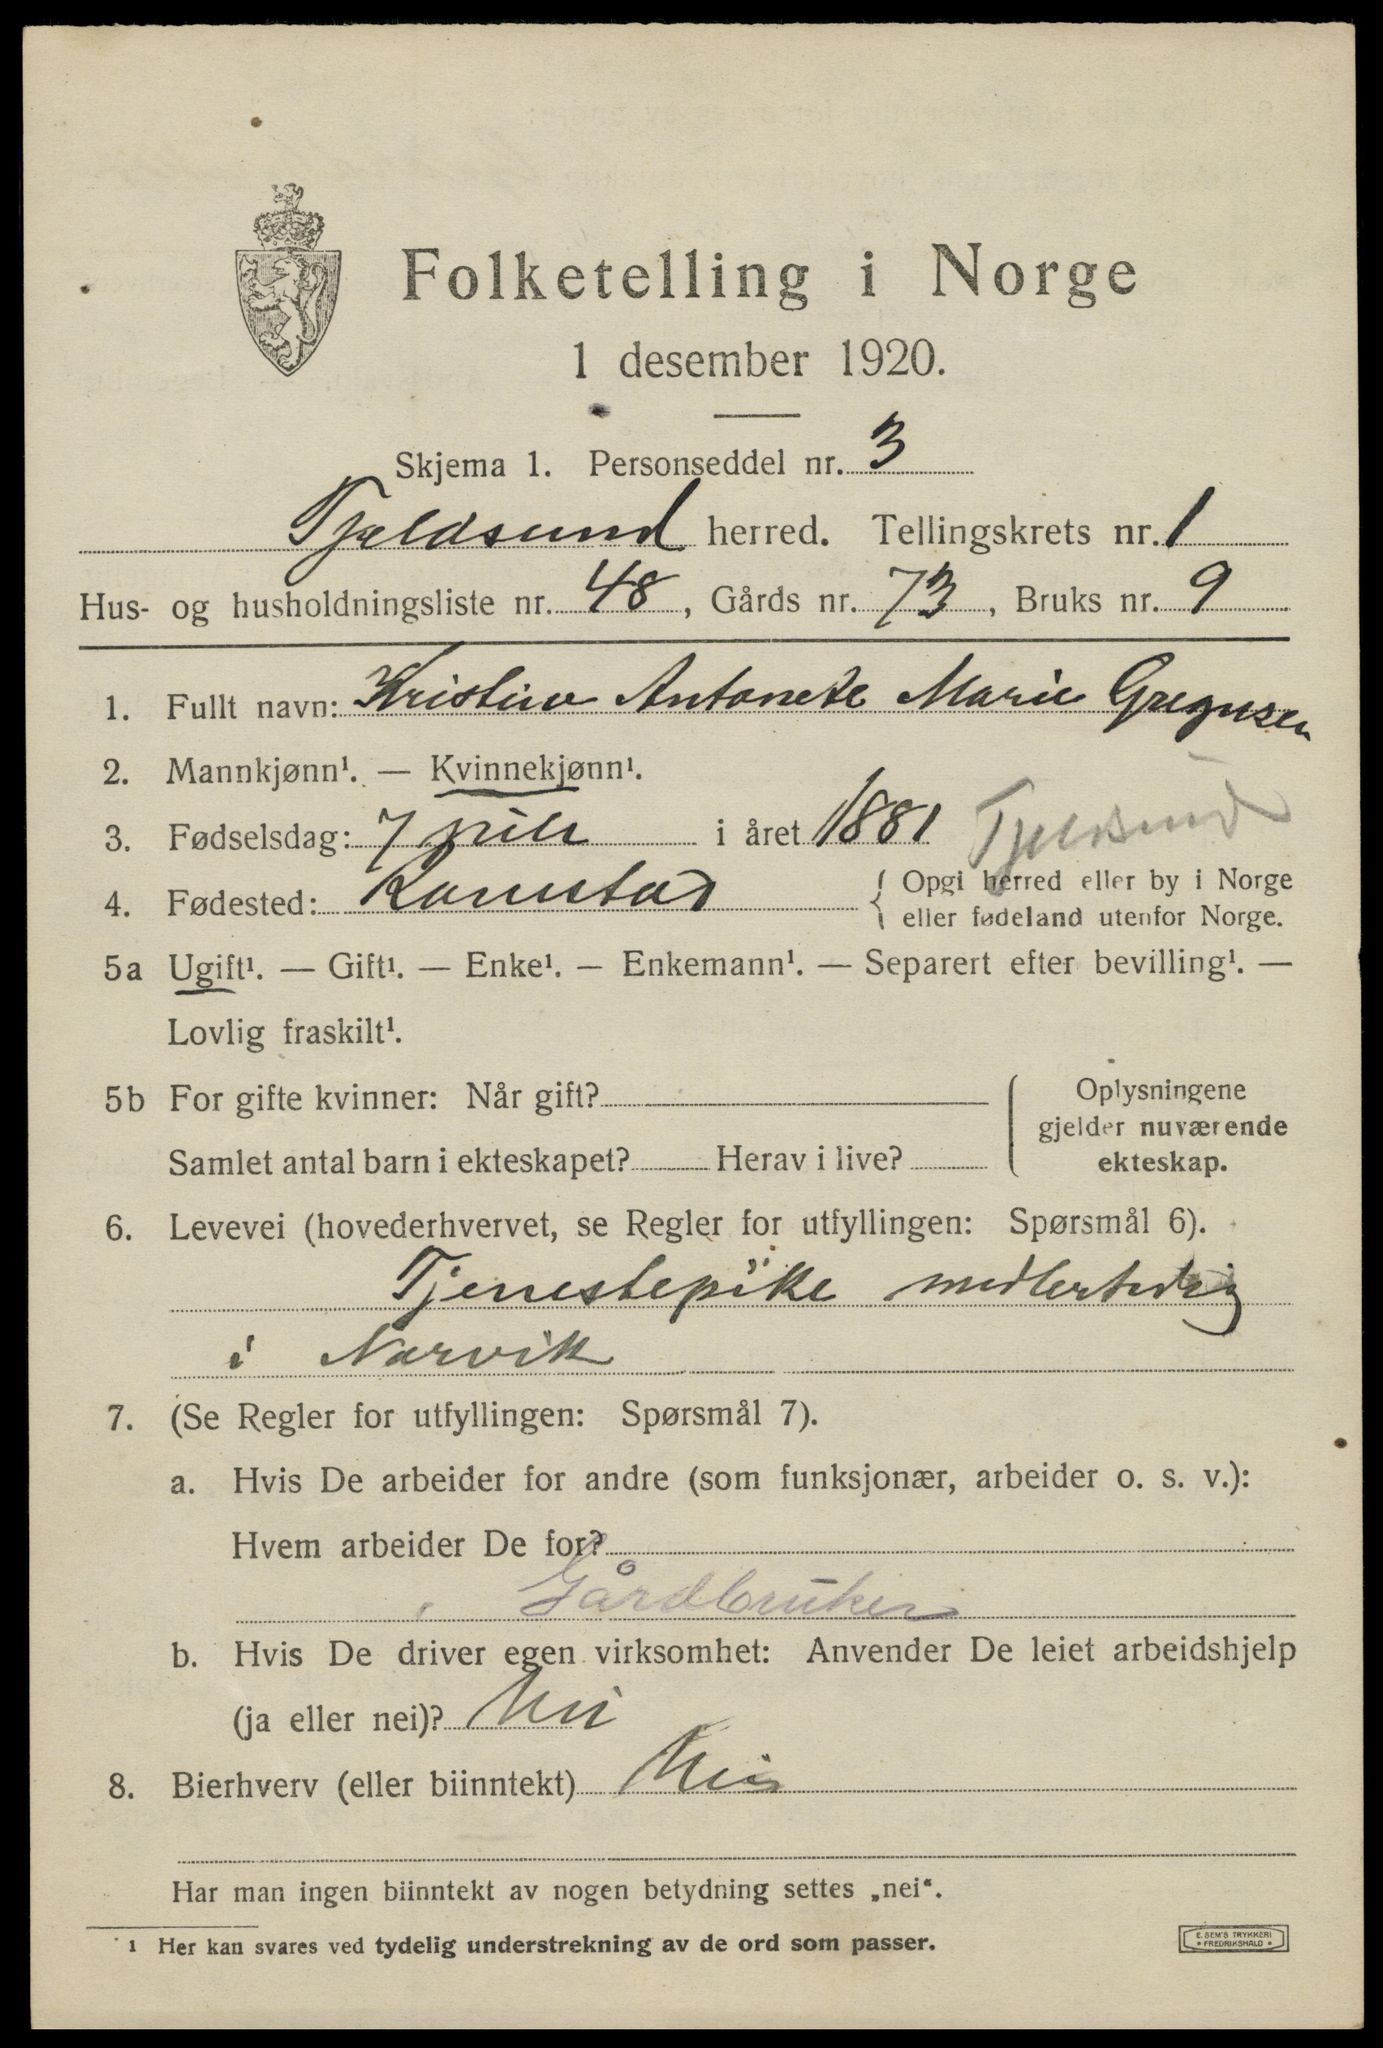 Folketelling i Norge
1 desember 1920.
Skjema 1. Personseddel nr. 3
Tjeldsund herred. Tellingskrets nr. 1
Hus- og husholdningsliste nr. 48, Gårds nr. 73, Bruks nr. 9
1. Fullt navn: Antonete Marie
2. Mannkjønn¹. — Kvinnekjønn¹.
3. Fødselsdag: 7 i året 1881 Tjeldsund
4. Fødested: Ramstad { Opgi herred eller by i Norge
eller fødeland utenfor Norge.
5a Ugift¹. — Gift¹. — Enke¹. — Enkemann¹. — Separert efter bevilling¹. —
Lovlig fraskilt¹.
5b For gifte kvinner: Når gift? Oplysningene
gjelder nuværende
Samlet antal barn i ekteskapet? Herav i live? ekteskap.
6. Levevei (hovederhvervet, se Regler for utfyllingen: Spørsmål 6).
Tjenestepike midlertidig
i Narvik
7. (Se Regler for utfyllingen: Spørsmål 7).
a. Hvis De arbeider for andre (som funksjonær, arbeider o. s. v.):
Hvem arbeider De for?
Gårdbruker
b. Hvis De driver egen virksomhet: Anvender De leiet arbeidshjelp
(ja eller nei)? Nei
8. Bierhverv (eller biinntekt) Nei
Har man ingen biinntekt av nogen betydning settes „nei“.
1 Her kan svares ved tydelig understrekning av de ord som passer.
E. SEM'S TRYKKERI
• FREDRIKSHALD •